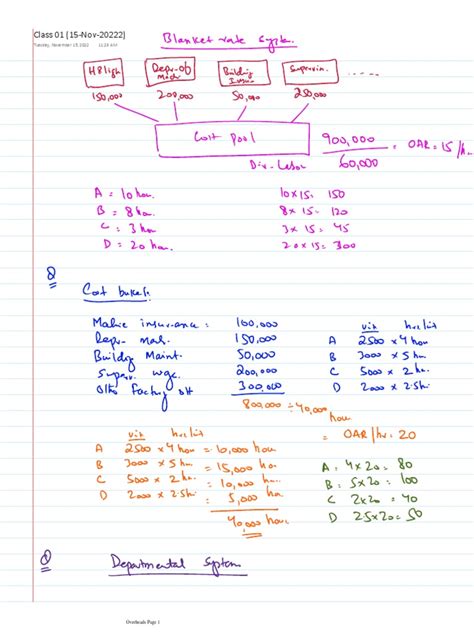 Class 01 (15-Nov-20222)
Tuesday, November 15, 2022 11:23 AM
Blanket rate System.
H&ligh Depr. of Mach Building Insur. Supervisin. .....
150,000 200,000 50,000 250,000
Cost Pool
900,000 / 60,000 = OAR = 15 /h
Dir. Labor
A = 10 hou. 10x15= 150
B = 8 hou. 8x15= 120
C = 3 hou 3x15= 45
D = 20 hou. 20x15= 300
Q
Cost buckets.
Machine insurance : 100,000
Depr. mach. 150,000
Building Maint. 50,000
Superv. wge. 200,000
Othr factory OH 300,000
800,000 ÷ 40,000 hour
= OAR/hr = 20
unit hrs/unit
A 2500 x 4 hour
B 3000 x 5 hr
C 5000 x 2 hr.
D 2000 x 2.5 hr.
unit hrs/unit
A 2500 x 4 hour = 10,000 hour
B 3000 x 5 hr = 15,000 hr
C 5000 x 2 hr. = 10,000 hr.
D 2000 x 2.5hr. = 5,000 hr
40,000 hour
A = 4x20 = 80
B = 5x20 = 100
C 2x20 = 40
D 2.5x20 = 50
Q
Departmental System
Overheads Page 1